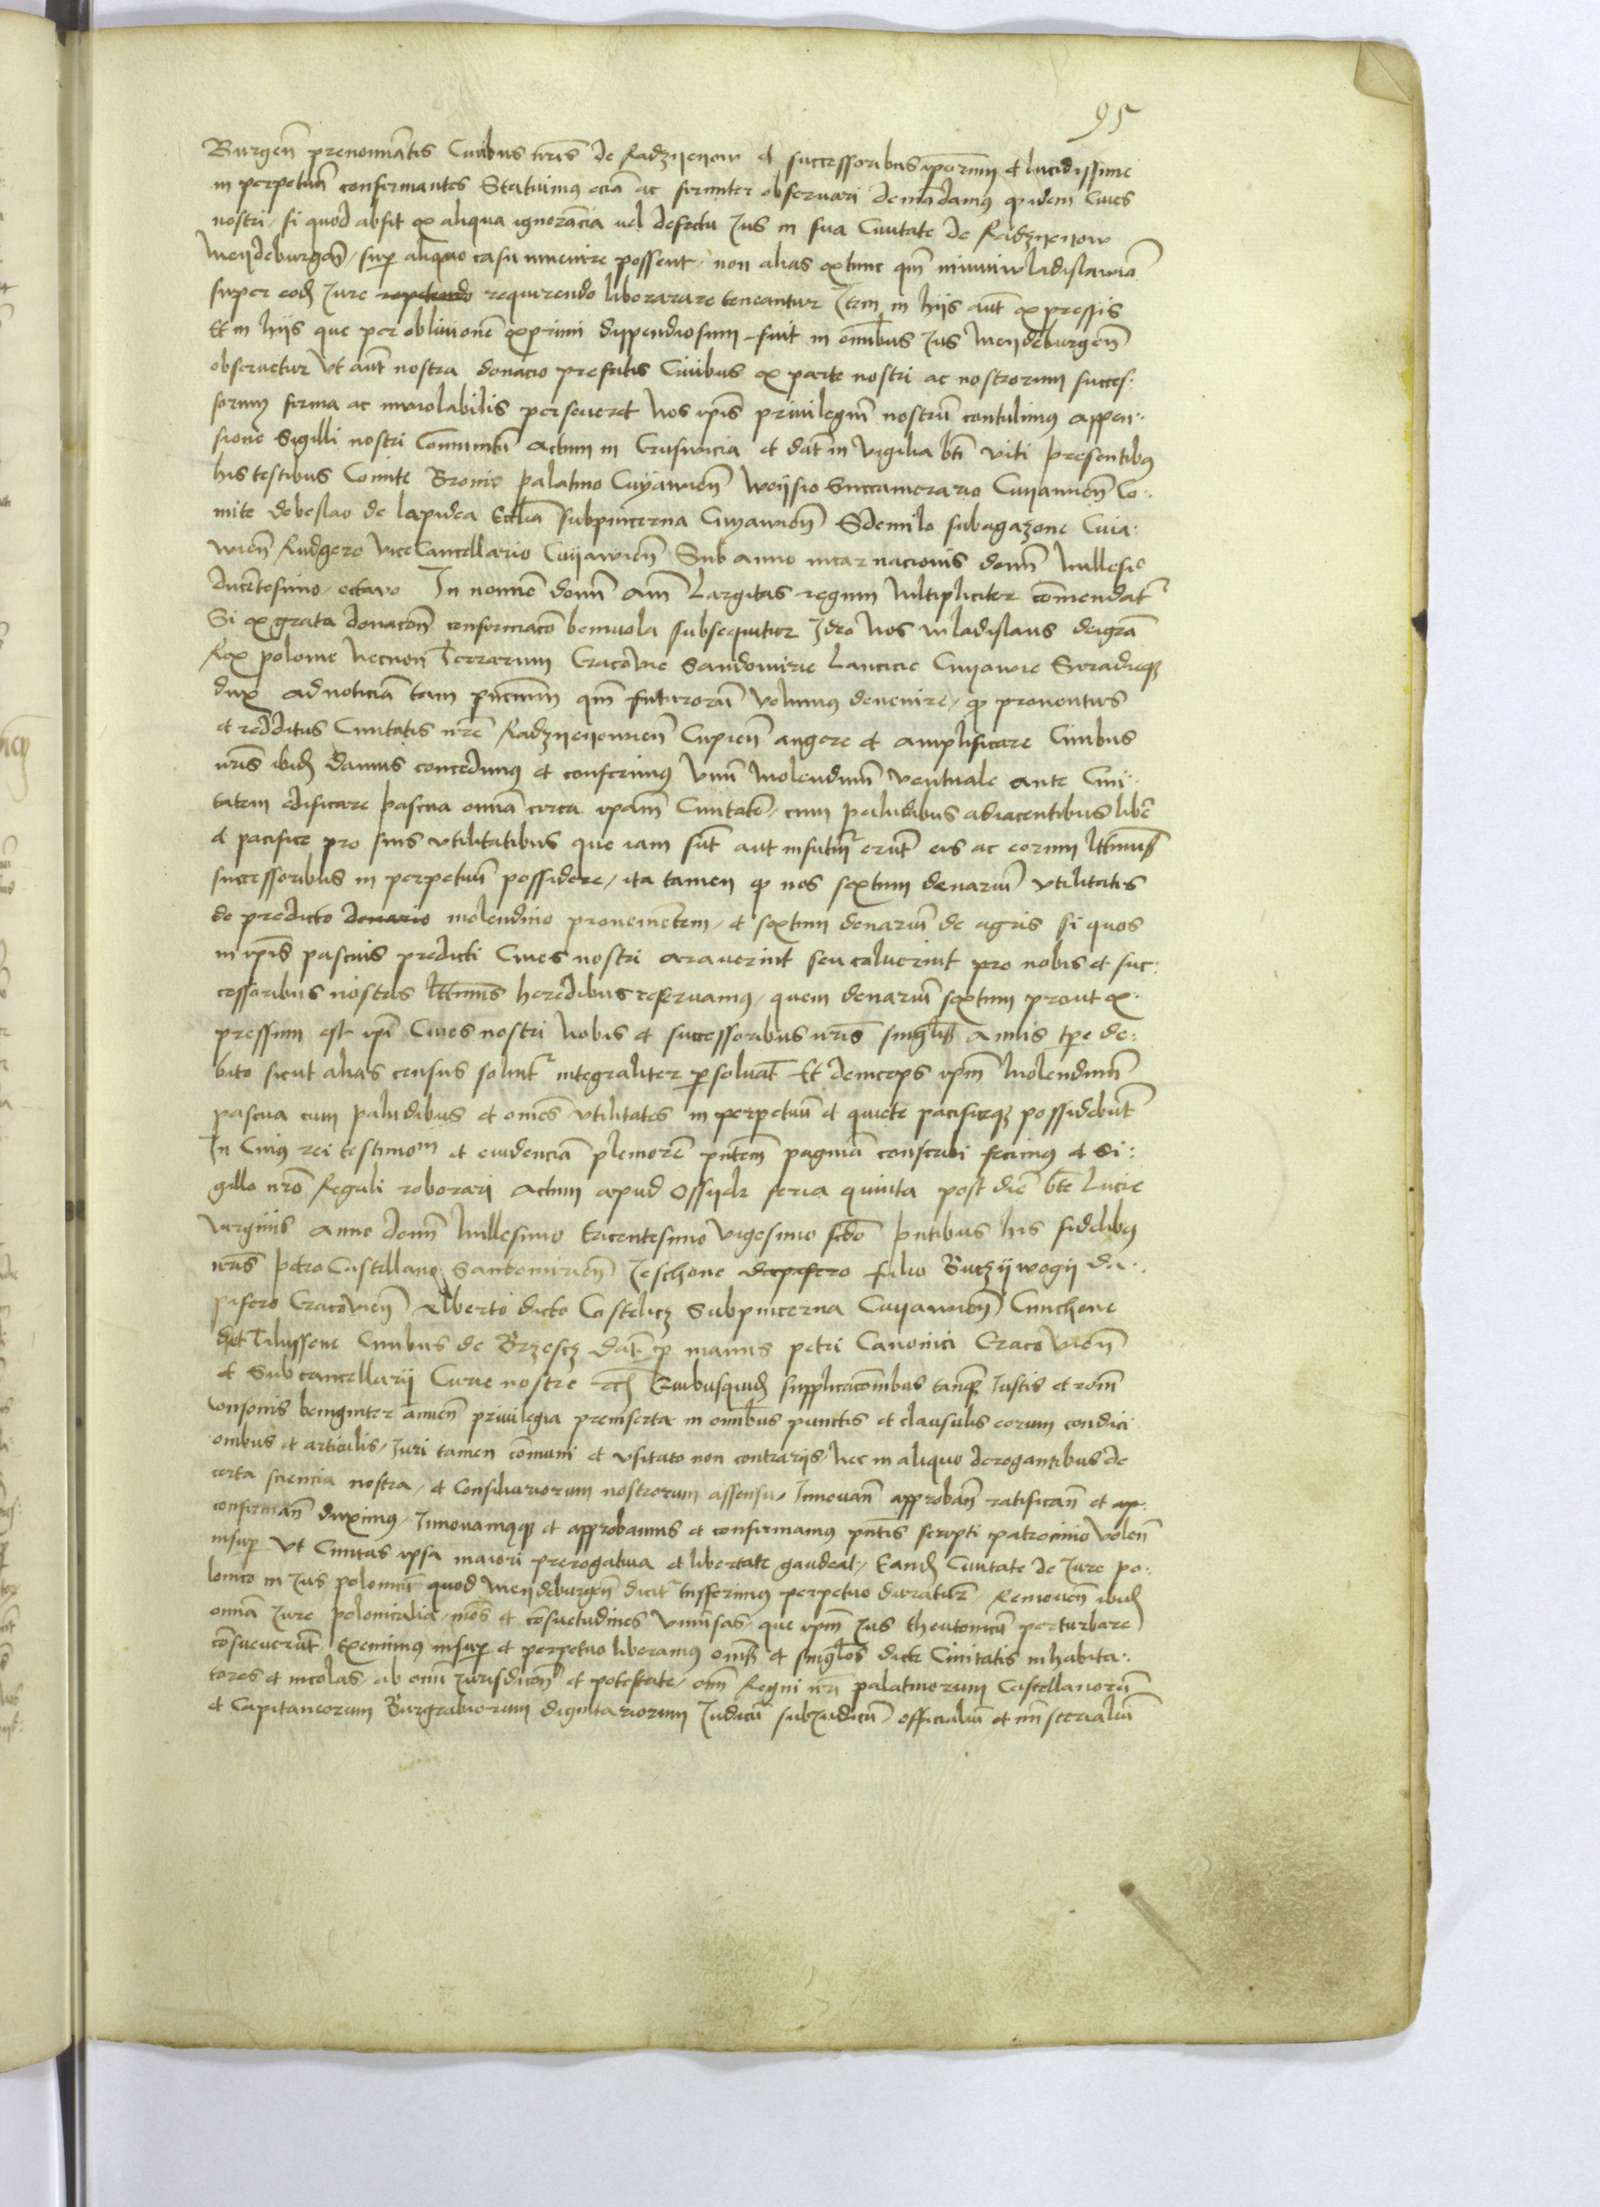 95
Burgen̄ prenomīatis Ciuibus nr̄is de Radzyeyow et successoribus ip̄orum et lucidissime
in perpetuū confirmantes Statuimus eciā ac firmiter obseruari demādamus q̄ idem Ciues
nostri / si quod absit ex aliqua ignorācia uel defectu Jus in sua Ciuitate de Radzyeyow
Meydeburgen̄ / sup̄ aliquo casu inuenire possent / non alias extunc qm̄ in iuniwladislawiā
super eod̄ Jure repetendo requirendo liborarare teneantur Jtem in hiis aūt expressis
Et in hiis que per obliuionē exprimi dispendiosum fuit in om̄ibus Jus Meydeburgen̄
obseruetur Vt aūt nostra donacio prefatis Ciuibus ex parte nostri ac nostrorum succes:
sorum firma ac inuiolabilis perseueret Nos ip̄is priuilegiū nostrū contulimus appen:
sione Sigilli nostri Com̄unitū Actum in Crusuicia et dat̄ in vigilia bt̄i viti presentibus
his testibus Comite Bronis palatino Cuyawien̄ Woysio Succamerario Cuyawien̄ Co:
mite debeslao de lapidea Eccl̄ia subpincerna Cuyawien̄ Sdemilo subagazone Cuia:
wien̄ Rudgero ViceCancellario Cuyawien̄ Sub anno incarnacionis domī Millesio
ducētesimo octauo In nomīe domī Am̄ Largitas regum Multipliciter com̄endat̄
Si ex grata donacoīe confirmacō beniuola subsequitur Jdeo Nos wladislaus dei grā
Rex polonie Necnon Terrarum Cracouie Sandomirie Lancicie Cuyauie Siradieq̄
dux Ad noticiā tam pn̄cium qm̄ futurorū volumus deuenire / q̄ prouentus
et redditus Ciuitatis nr̄e Radzyeyowien̄ Cupien̄ augere et amplificare Ciuibus
nr̄is ibid̄ damus concedimus et conferimus Vnū Molendinū Ventuale ante Ciui:
tatem edificare pascua omīa circa ip̄am Ciuitatē / cum paludibus adiacentibus libē
et pacifice pro suis vtilitatibus que iam sūt aut infutur̄ erūt eis ac eorum lt̄timis
successoribus in perpetuū possidere / ita tamen q̄ nos sextum denariū vtilitatis
de predicto denario molendino prouenientem / et sextum denariū de agris si quos
in ip̄is pascuis predicti Ciues nostri arauerint seu coluerint pro nobis et suc:
cessoribus nostris lt̄timis heredibus reseruamus / quem denariū sextum prout ex:
pressum est ip̄i Ciues nostri Nobis et successoribus nr̄is singl̄is Annis tp̄e de:
bito sicut alias census soluūt̄ integraliter p̄soluāt Et deinceps ip̄m Molendinū
pascua cum paludibus et omēs vtilitates in perpetuū et quiete pacificeq̄ possidebūt
In Cuius rei testimom̄ et euidenciā pleniorē pn̄tem paginā conscribi fecimus et Si:
gillo nr̄o Regali roborari Actum apud Ossyek feria quinta post diē bt̄e Lucie
virginis Anno domī Millesimo tricentesimo vigesimo scd̄o pn̄tibus his fidelibus
nr̄is petro Castellano Sandomirien̄ Jeschone dapifero filio Buczywogii da:
pifero Cracouien̄ Alberto dicto Costelicz Subpincerna Cuyawien̄ Cunchone
et Tilussone Ciuibus de Brzescz Dat̄ p̄ manus petri Canonici Cracouien̄
et Subcancellarij Curie nostre etc̄ Quibusquid̄ supplicacoībus tanq̄ Justis et rom̄
consonis benigniter annuen̄ priuilegia preinserta in om̄ibus punctis et clausulis eorum condici
onibus et articulis / Juri tamen com̄uni et vsitato non contrarijs / Nec in aliquo derogantibus de
certa sciencia nostra / et Consiliariorum nostrorum assensu / Jnnouan̄ approban̄ ratifican̄ et
confirman̄ duximus / Jnnouamusq̄ et approbamus et confirmamus pn̄tis scripti patrocinio volen̄
insup̄ Vt Ciuitas ipsa maiori prerogatiua et libertate gaudeat / Eand̄ Ciuitatē de Jure po:
lonico in Jus polonicū quod Meydeburgen̄ dicit̄ trāsferimus perpetuo duratur̄ / Remouen̄ ibid̄
omīa Jura polonicalia / mo͞s et cōsuetudines vniūsas / que ip̄m Jus theutonicū perturbare
cōsueuerūt Eximimus insup̄ et perpetuo liberamus om̄s et singl̄os dicte Ciuitatis inhabita:
tores et incolas / ab omī Jurisdicoīe et potestate / om̄ Regni nr̄i palatinorum Castellanorū
et Capitaneorum Burgrabiorum dignitariorum Judicū subJudicū / officialiū et min̄sterialiū